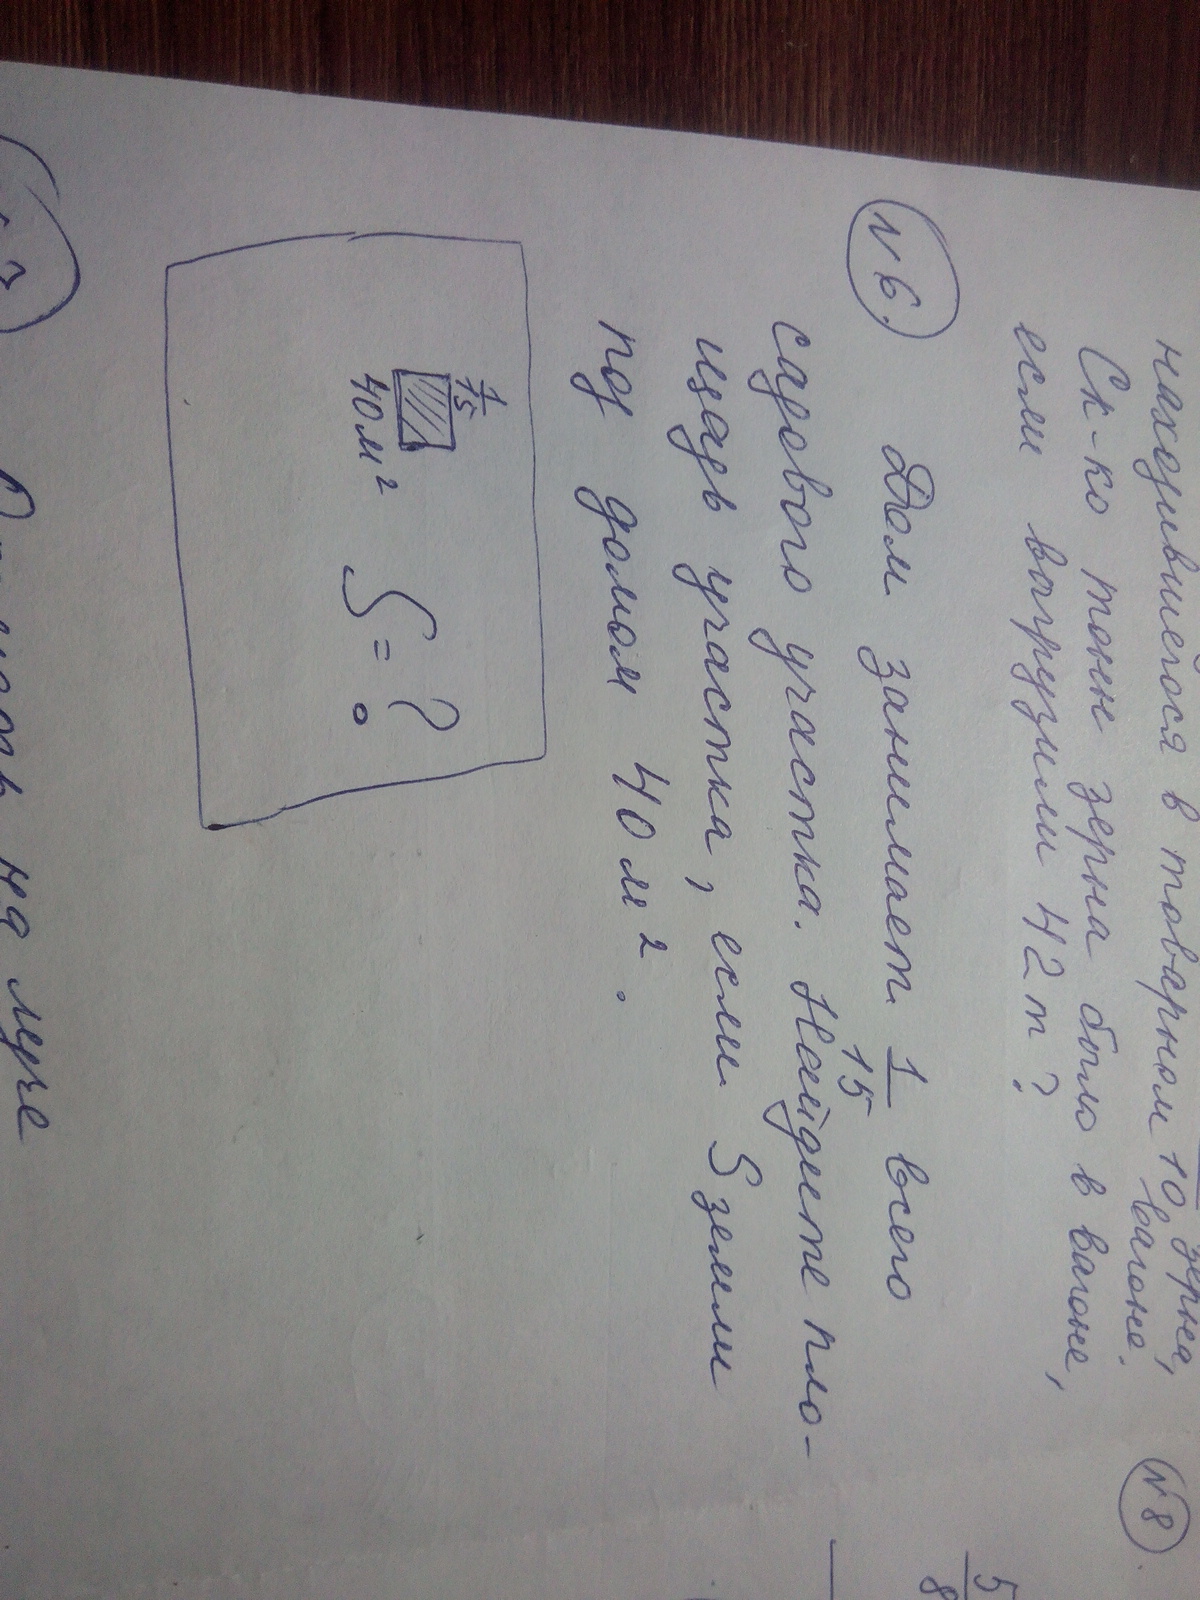 находившегося в товарном
10 зерна,
вагоне.
Ск-ко тонн зерна было в вагоне,
если выгрузили 42 т?
№6. Дом занимает 1/15 всего
садового участка. Найдите пло-
щадь участка, если S земли
под домом 40 м².
1/15
40 м² S = ?
на луче
№8
5/8